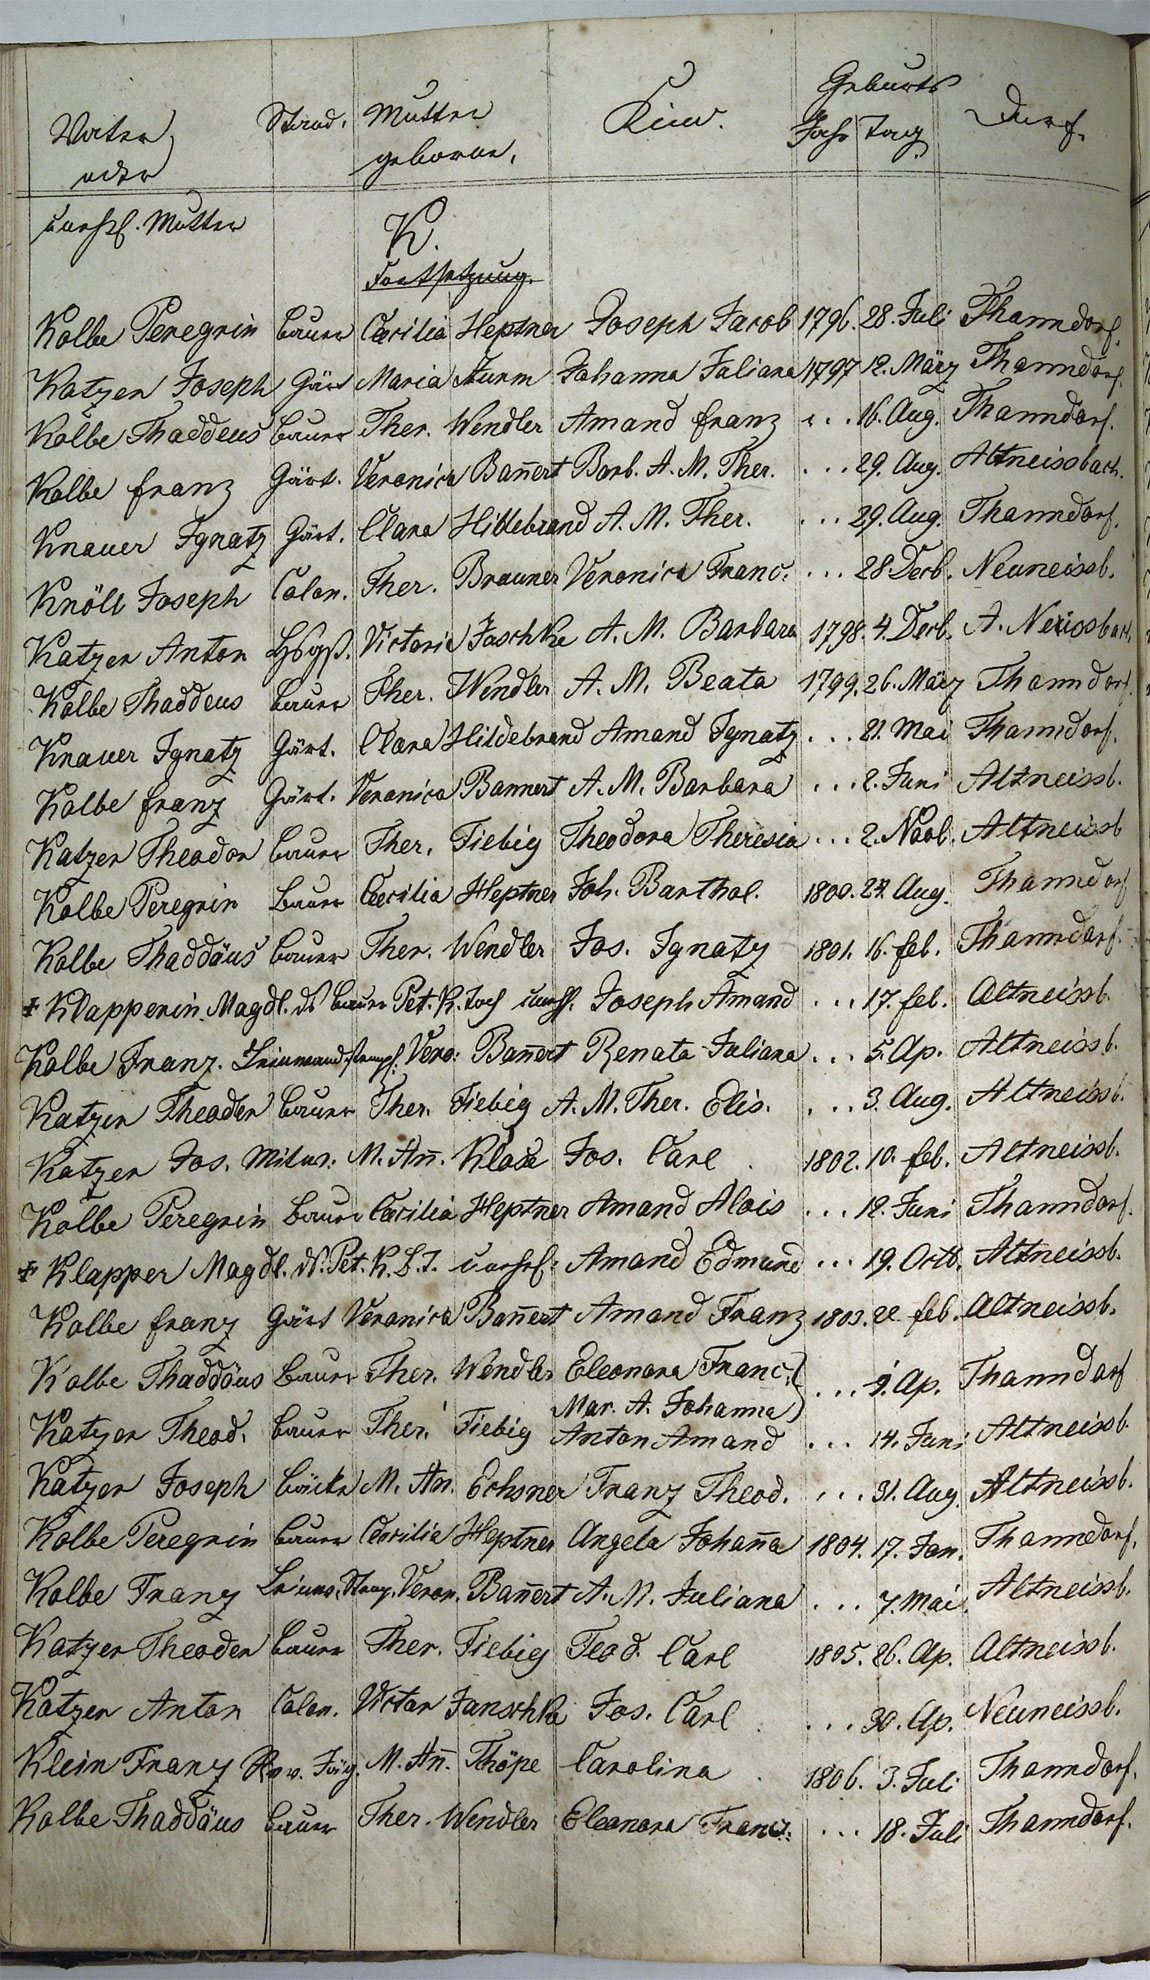 Geburts
Vater Stand. Mutter Kind. Jahr Tag Dorf.
oder geborne.
unehl. Mutter
K.
Fortsetzung.
Kolbe Peregrin Bauer Cæcilia Heptner Joseph Jacob 1796. 28. Juli Thanndorf.
Katzer Joseph Gärt Maria Sturm Johanna Juliana 1797 12. März Thanndorf.
Kolbe Thaddeus Bauer Ther. Wendler Amand Franz ... 16. Aug. Thanndorf.
Kolbe Franz Gärt. Veronica Bañert Barb. A. M. Ther. ... 29. Aug. Altneissbach.
Knauer Ignatz Gärt. Clara Hildebrand A. M. Ther. ... 29. Aug. Thanndorf.
Knöll Joseph Colon. Ther. Brauner Veronica Franc. ... 28 Decb. Neuneissb.
Katzer Anton Victoria Jaschke A. M. Barbara 1798. 4. Decb. A. Neissbach.
Kolbe Thaddeus Bauer Ther. Wendler A. M. Beata 1799. 26. März Thanndorf.
Knauer Ignatz Gärt. Clara Hildebrand Amand Ignatz ... 21. Mai Thanndorf.
Kolbe Franz Gärt. Veronica Bannert A. M. Barbara ... 2. Juni Altneissb.
Katzer Theodor Bauer Ther. Fiebig Theodora Theresia ... 2. Novb. Altneissb
Kolbe Peregrin Bauer Cæcilia Heptner Joh. Barthol. 1800. 24. Aug. Thanndorf
Kolbe Thaddäus Bauer Ther. Wendler Jos. Ignatz 1801. 16. Feb. Thanndorf.
+ Klapperin Magdl. ds Bauer Pet. K. Toch unehl. Joseph Amand ... 17. Feb. Altneissb.
Kolbe Franz. Leinwandstempl. Vero: Bañert Renata Juliana ... 5. Ap. Altneissb.
Katzer Theoder Bauer Ther. Fiebig A. M. Ther. Elis. ... 3. Aug. Altneissb.
Katzer Jos. M. Añ. Klose Jos. Carl 1802. 10. Feb. Altneissb.
Kolbe Peregrin Bauer Cæcilia Heptner Amand Alois ... 12. Juni Thanndorf.
+ Klapper Magdl. d. Pet. K. B. T. unehl: Amand Edmund ... 19. Octb. Altneissb.
Kolbe Franz Gärt Veronica Bañert Amand Franz 1803. 22 Feb. Altneissb.
Kolbe Thaddäus Bauer Ther. Wendler Eleonora Franc. ... 9. Ap. Thanndorf
Mar. A. Johanna
Katzer Theod. Bauer Ther. Fiebig Anton Amand ... 14. Juni Altneissb.
Katzer Joseph Bäcke M. An. Echsner Franz Theod. ... 31. Aug Altneissb.
Kolbe Peregrin Bauer Cæcilia Heptner Angela Johaña 1804. 17. Jan. Thanndorf.
Kolbe Franz Leinw. Stemp. Veron. Bañert A. M. Juliana ... 7. Mai Altneissb.
Katzer Theoder Bauer Ther. Fiebig Teod. Carl 1805. 26. Ap. Altneissb.
Katzer Anton Colon. Victor Janschke Jos. Carl ... 30. Ap. Neuneissb.
Klein Franz Rev. Jäg. M. Añ. Thöpe Carolina 1806. 3. Juli Thanndorf.
Kolbe Thaddäus Bauer Ther. Wendler Eleonora Franc. ... 18. Juli Thanndorf.